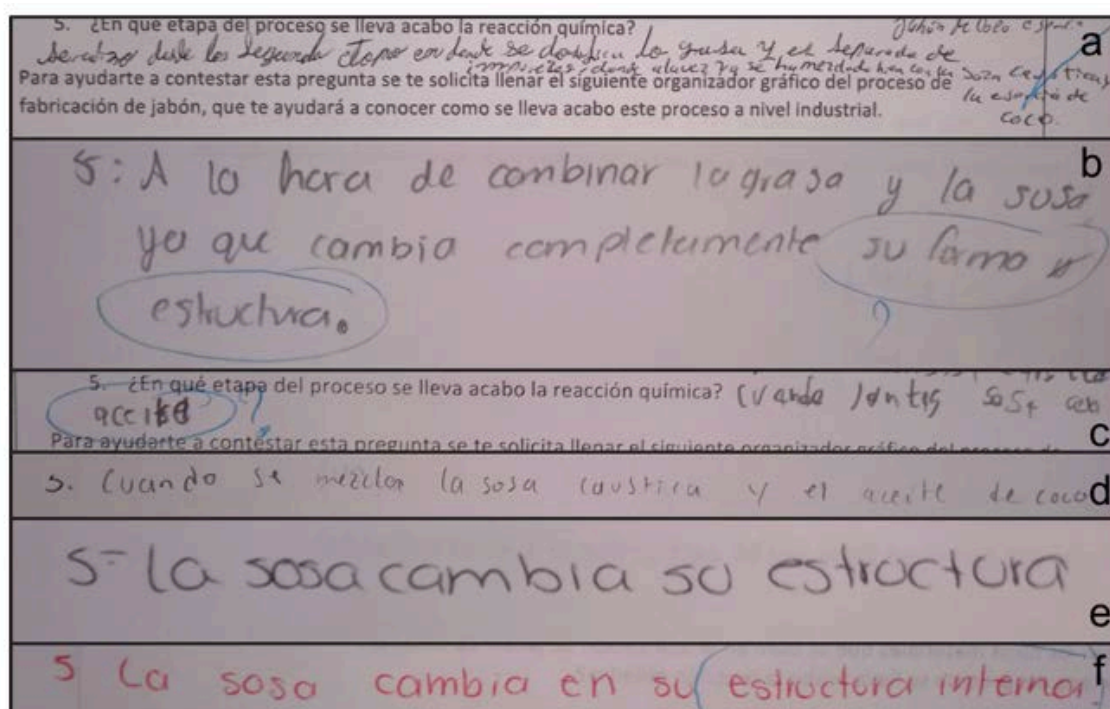 5. ¿En qué etapa del proceso se lleva acabo la reacción química?
a
desde la segunda etapa en donde se la grasa y es separada de
Para ayudarte a contestar esta pregunta se te solicita llenar el siguiente organizador gráfico del proceso de
fabricación de jabón, que te ayudará a conocer como se lleva acabo este proceso a nivel industrial.
coco.
b
5: A la hora de combinar la grasa y la sosa
ya que cambia completamente su forma y
estructura.
5. ¿En qué etapa del proceso se lleva acabo la reacción química? Cuando juntas sosa con
aceite ?
Para ayudarte a contestar esta pregunta se te solicita llenar el siguiente organizador gráfico del proceso de
c
5. Cuando se mezclan la sosa caustica y el aceite de coco
d
5- La sosa cambia su estructura
e
5 La sosa cambia en su estructura interna
f